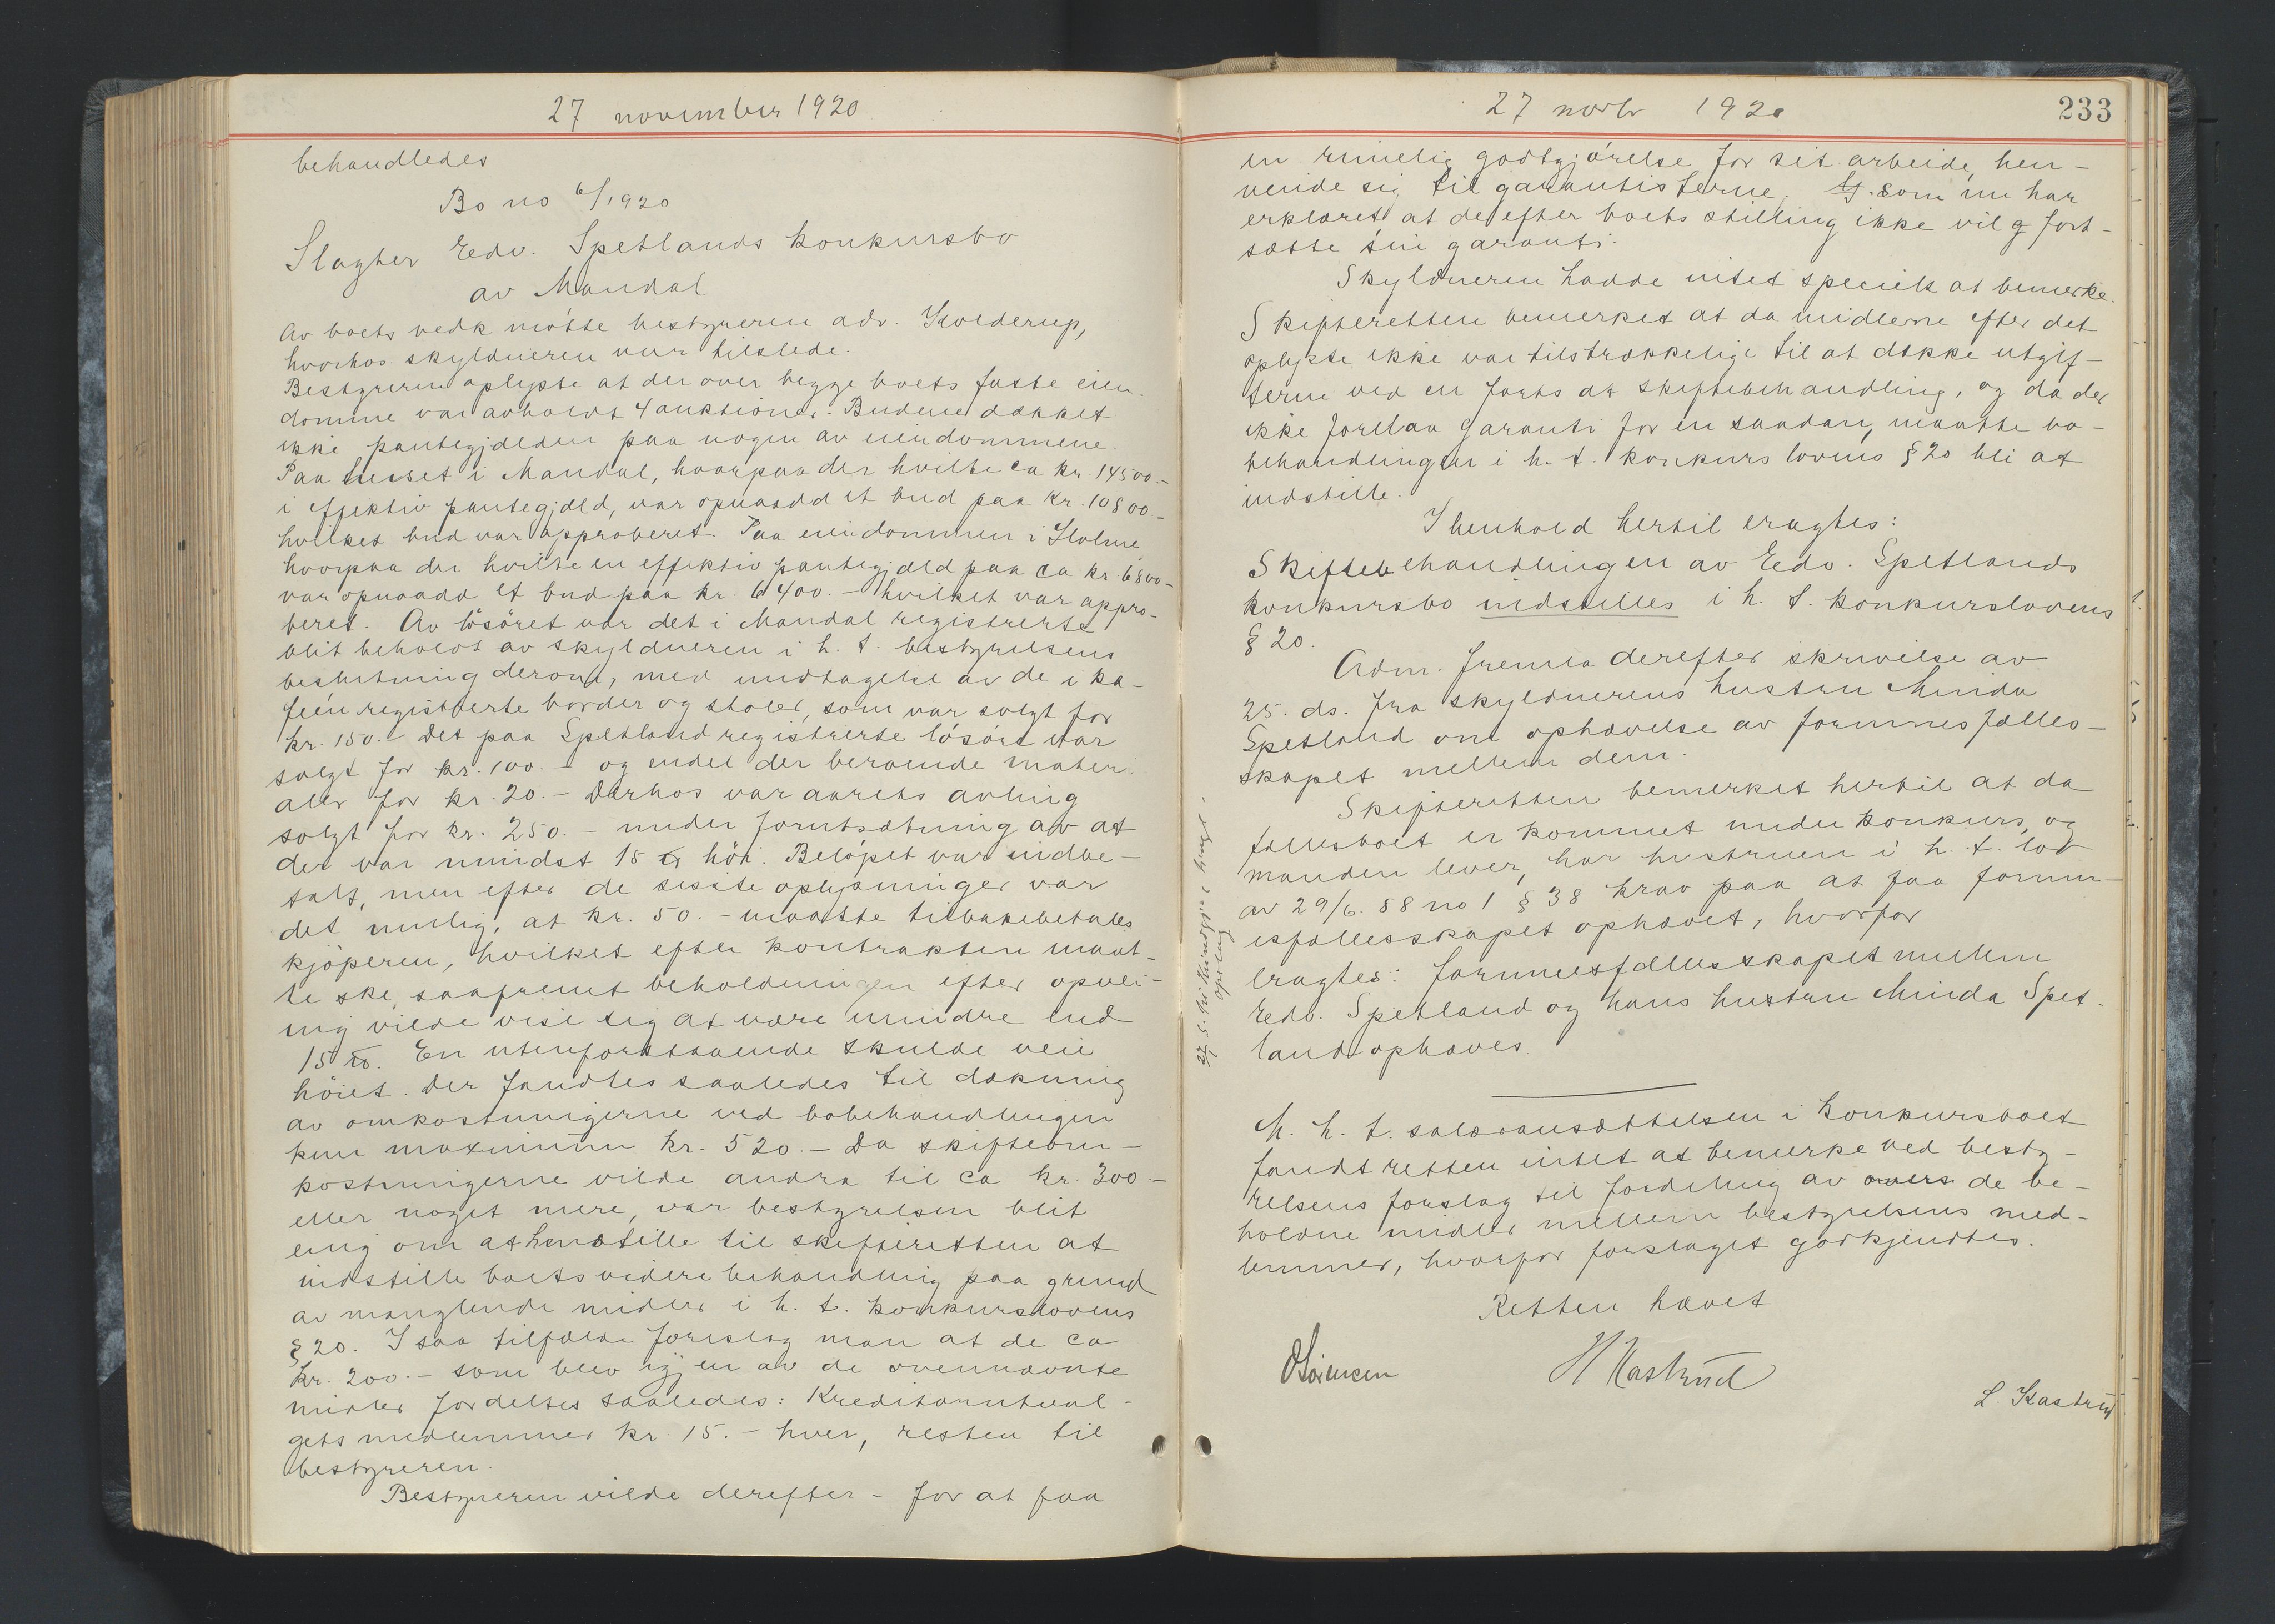 27 november 1920.
behandledes
Bo no 6/1920
Slagter Edv. Spetlands konkursbo
av Mandal
Av boets vedk møtte bestyreren adv. Kolderup,
hvorhos skyldneren var tilstede.
Bestyreren oplyste at der over begge boets faste eien-
domme var avholdt 4 auktioner. Budene dækket
ikke pantegjælden paa nogen av eiendommene.
Paa huset i Mandal, hvorpaa der hvilte ca kr. 14500.-
i effektiv pantegjæld, var opnaadd et bud paa kr. 10800.-
hvilket bud var approberet. Paa eiendommen i Holme
hvorpaa der hvilte en effektiv pantegjæld paa ca kr. 6800-
var opnaadd et bud paa kr. 6400.- hvilket var appro-
beret. Av løsøret var det i Mandal registrerte
blit beholdt av skyldneren i h. t. bestyrelsens
beslutning derom, med undtagelse av de i ka-
feen registrerte border og stoler, som var solgt for
kr. 150.- Det paa Spetland registrerte løsøre var
solgt for kr. 100.- og endel der beroende materi-
aler for kr. 20.- Derhos var aarets avling
solgt for kr. 250.- under forutsætning av at
der var mindst 15 høi. Beløpet var indbe-
talt, men efter de sidste oplysninger var
det mulig, at kr. 50.- maatte tilbakebetales
kjøperen, hvilket efter kontrakten maat-
te ske, saafremt beholdningen efter opvei-
ing vilde vise sig at være mindre end
15 En utenforstaaende skulde veie
høiet. Der fandtes saaledes til dækning
av omkostningerne ved bobehandlingen
kun maximum kr. 520.- Da skifteom-
kostningerne vilde andra til ca kr. 300.-
eller noget mere, var bestyrelsen blit
enig om at henstille til skifteretten at
indstille boets videre behandling paa grund
av manglende midler i h. t. konkurslovens
§ 20. I saa tilfælde foreslog man at de ca
kr. 200.- som blev igjen av de ovennævnte
midler fordeltes saaledes: Kreditorutval-
gets medlemmer kr. 15.- hver, resten til
bestyreren.
Bestyreren vilde derefter - for at faa
27 novbr 1920
233
en rimelig godtgjørelse for sit arbeide, hen-
vende sig til garantisterne, som nu har
erklæret at de efter boets stilling ikke vil fort-
sætte sin garanti.
Skyldneren hadde intet specielt at bemerke.
Skifteretten bemerket at da midlerne efter det
oplyste ikke var tilstrækkelige til at dække utgif-
terne ved en forts at skiftebehandling, og da der
ikke forelaa garanti for en saadan, maatte bo-
behandlingen i h. t. konkurslovens § 20 bli at
indstille.
I henhold hertil eragtes:
Skiftebehandlingen av Edv. Spetlands
konkursbo indstilles i h. t. konkurslovens
§ 20.
Adm. fremla derefter skrivelse av
25. ds. fra skyldnerens hustru Minda
Spetland om ophævelse av formuesfælles-
skapet mellem dem.
Skifteretten bemerket hertil at da
fællesboet er kommet under konkurs, og
manden lever, har hustruen i h. t. lov
av 29/6. 88 no 1 § 38 krav paa at faa formu-
esfællesskapet ophævet, hvorfor
eragtes: formuesfællesskapet mellem
Edv. Spetland og hans hustru Minda Spet-
land ophæves.
M. h. t. salæransættelsen i konkursboet
fandt retten intet at bemerke ved besty-
relsens forslag til fordeling av overs de be-
holdne midler mellem bestyrelsens med-
lemmer, hvorfor forslaget godkjendtes.
Retten hævet
OSørensen
H Kastrud
L. Kastrud